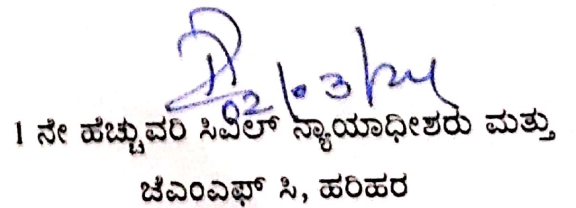 02/03/24
1 ನೇ ಹೆಚ್ಚುವರಿ ಸಿವಿಲ್ ನ್ಯಾಯಾಧೀಶರು ಮತ್ತು
ಜೆಎಂಎಫ್ ಸಿ, ಹರಿಹರ